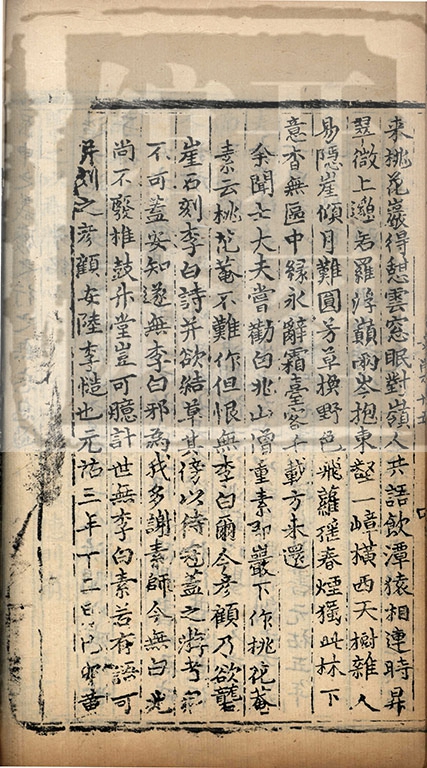 來桃花巖得憩雲窓眠對嶺人共語飲潭猿相連時昇
翠微上邈若羅浮巔兩岑抱東壑一嶂橫西天樹雜人
易隱崖傾月難圓芳草換野色飛蘿搖春煙獨此林下
意杳無區中緣永辭霜臺客千載方來還
余聞士大夫嘗勸白兆山僧重素即巖下作桃花菴
素云桃花菴不難作但恨無李白爾今彥顧乃欲礱
崖石刻李白詩并欲結草其傍以待冠蓋之遊考
不可蓋安知遂無李白邪為我多謝素師今無白
尚不發推鼓升堂豈可臆計世無李白素若有語可
并刻之彥顧安陸李愷也元祐三年十二 黃